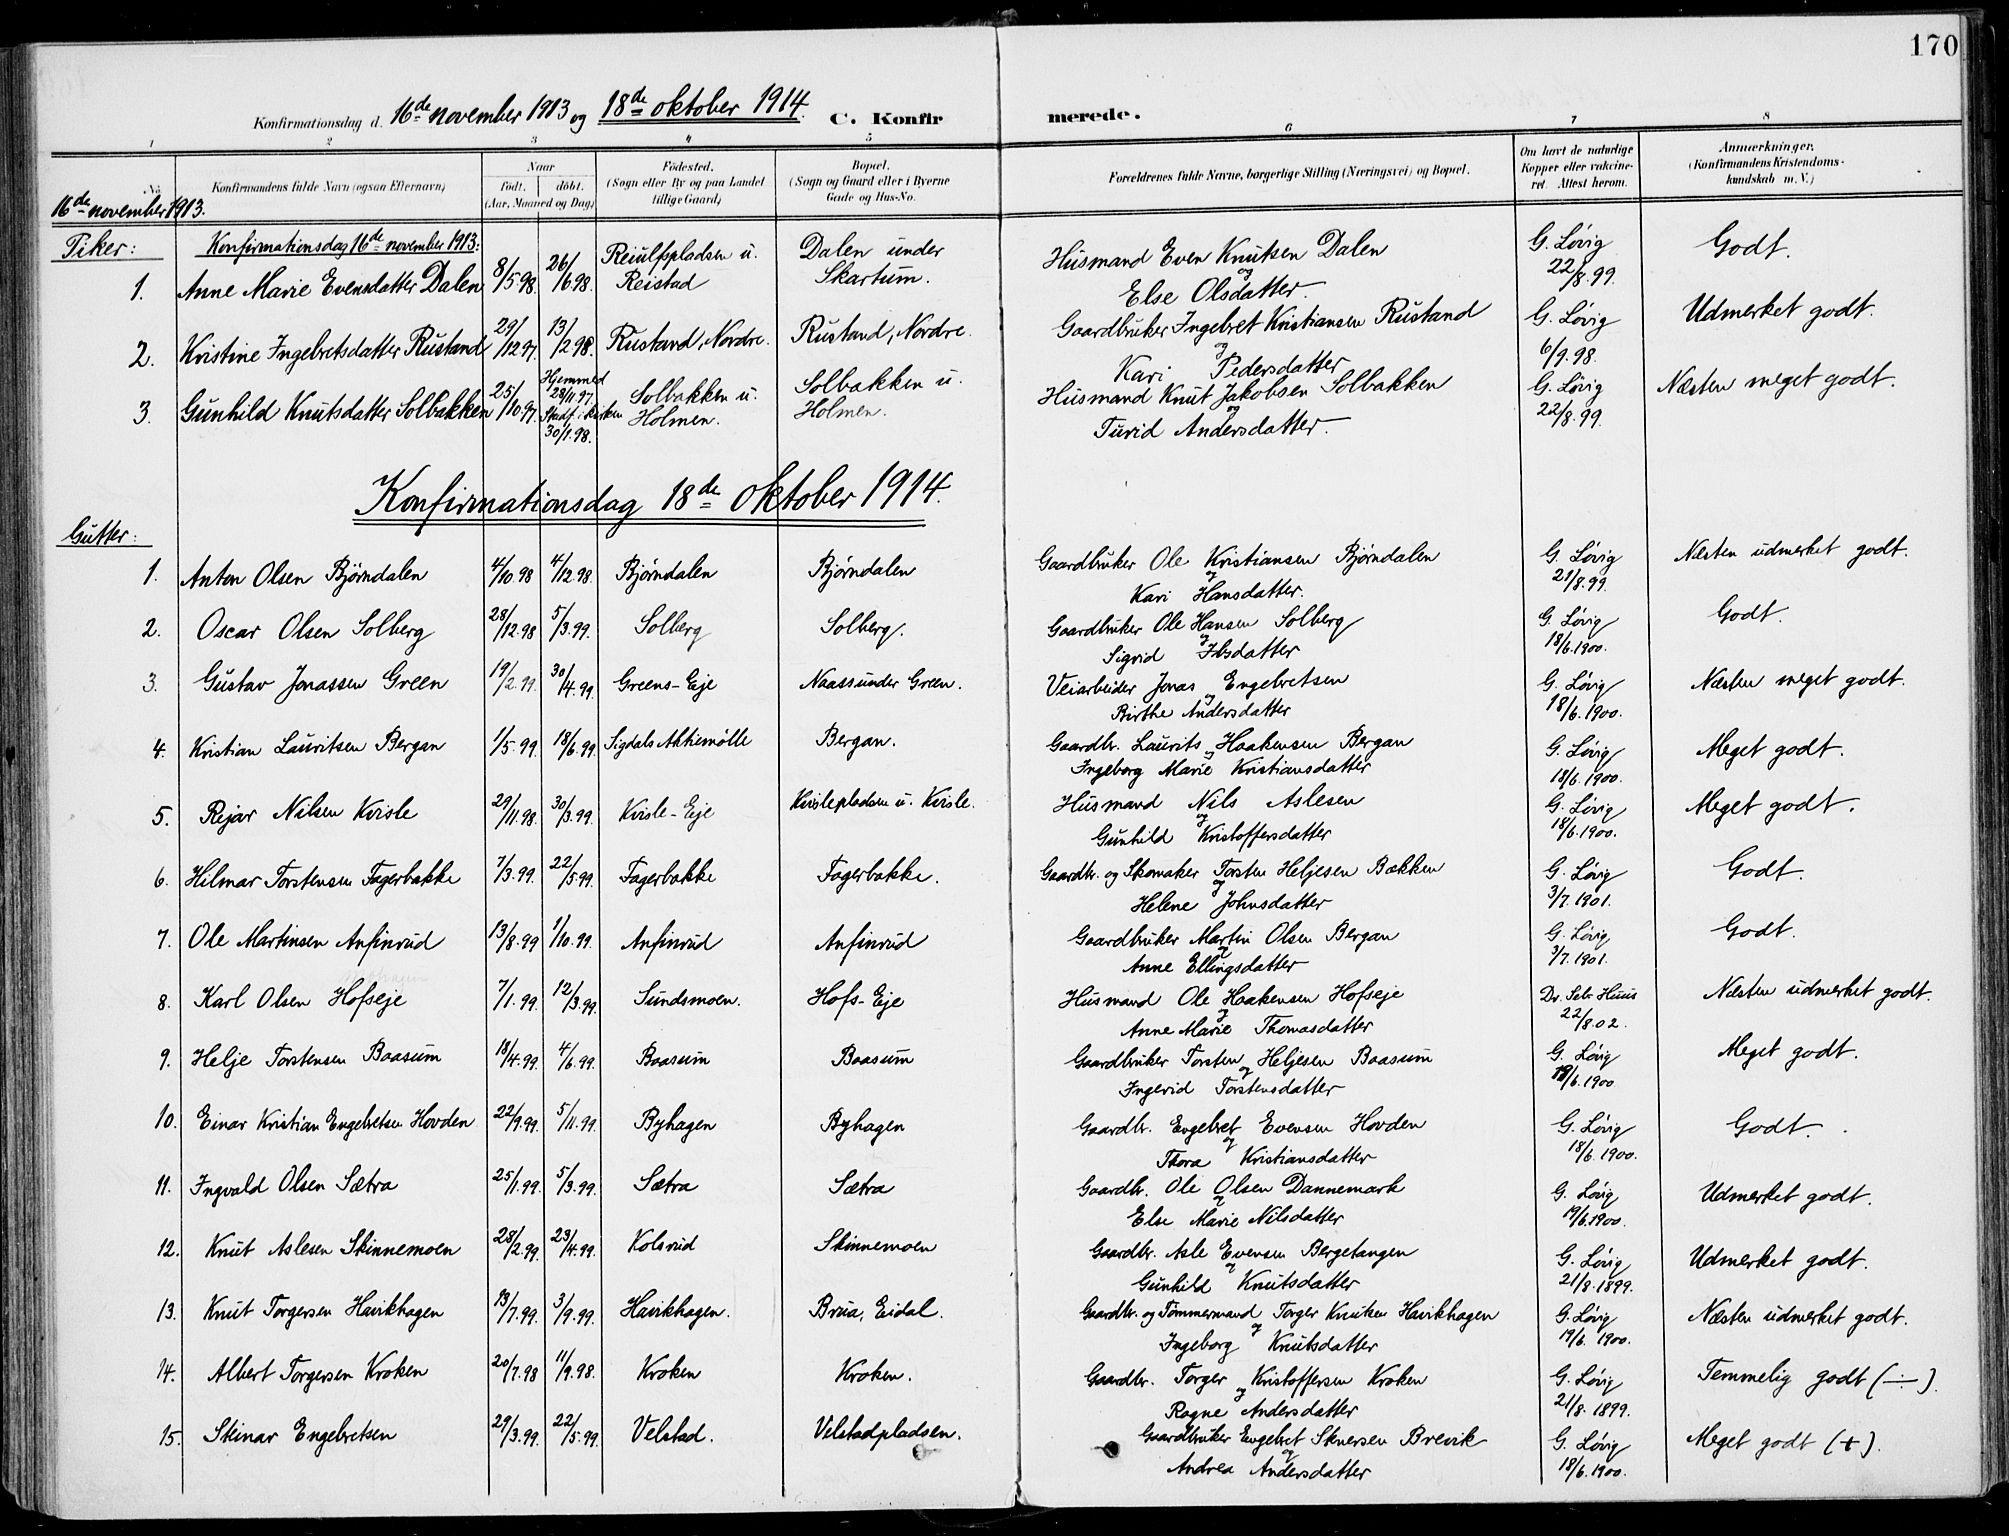 170
Konfirmationsdag d. 16de november 1913 og 18de oktober 1914. C. Konfirmerede.
1 2 3 4 5 6 7 8
No. Konfirmandens fulde Navn (ogsaa Efternavn) Naar født. døbt. (Aar, Maaned og Dag) Fødested. (Sogn eller By og paa Landet tillige Gaard) Bopæl. (Sogn og Gaard eller i Byerne Gade og Hus-No. Forældrenes fulde Navne, borgerlige Stilling (Næringsvei) og Bopæl. Om havt de naturlige Kopper eller vakcineret. Attest herom. Anmærkninger. (Konfirmandens Kristendomskundskab m. V.)
16de november 1913.
Piker: Konfirmationsdag 16de november 1913:
1. Anne Marie Evensdatter Dalen 8/5.98. 26/6.98. Reiulfspladsen u. Reistad Dalen under Skartum. Husmand Even Knutsen Dalen og Else Olsdatter. G. Løvig 22/8.99. Godt.
2. Kristine Ingebretsdatter Rustand 29/12.97. 13/2.98. Rustand, Nordre. Rustand, Nordre. Gaardbruker Ingebret Kristiansen Rustand og Kari Pedersdatter G. Løvig 6/9.98. Udmerket godt.
3. Gunhild Knutsdatter Solbakken 25/10.97. Hjemmed 28/11.97. Stadf. i kirken 30/1.98. Solbakken u. Holmen. Solbakken u. Holmen. Husmand Knut Jakobsen Solbakken og Turid Andersdatter. G. Løvig 22/8.99. Næsten meget godt.
Konfirmationsdag 18de oktober 1914.
Gutter:
1. Anton Olsen Bjørndalen 4/10.98 4/12.98. Bjørndalen Bjørndalen Gaardbruker Ole Kristiansen Bjørndalen og Kari Hansdatter. G. Løvig 21/8.99. Næsten udmerket godt.
2. Oscar Olsen Solberg 28/12.98 5/3.99. Solberg Solberg. Gaardbruker Ole Hansen Solberg og Sigrid datter G. Løvig 18/6.1900. Godt.
3. Gustav Jonassen Green 19/2.99. 30/4.99. Greens-Eje Naass under Green. Veiarbeider Jonas Engebretsen og Birthe Andersdatter G. Løvig 18/6.1900. Næsten meget godt.
4. Kristian Lauritsen Bergan 1/5.99. 18/6.99. Sigdals Aktiemølle Bergan. Gaardbr. Laurits Haakensen Bergan og Ingeborg Marie Kristiansdatter G. Løvig 18/6.1900. Meget godt.
5. Rejar Nilsen Kvisle 29/11.98. 30/3.99. Kvisle-Eje Kvislepladsen u. Kvisle. Husmand Nils Aslesen og Gunhild Kristoffersdatter G. Løvig 18/6.1900. Meget godt.
6. Hilmar Torstensen Fagerbakke 7/3.99. 22/5.99. Fagerbakke Fagerbakke. Gaardbr. og Skomaker Torsten Heljesen Bakken og Helene Johnsdatter G. Løvig 3/7.1901. Godt.
7. Ole Martinsen Anfinrud 13/8.99 1/10.99. Anfinrud Anfinrud Gaardbruker Martin Olsen Bergan og Anne Ellingsdatter G. Løvig 3/7.1901. Godt.
8. Karl Olsen Hofseje 7/1.99. 12/3.99. Sundsmoen. Hofs-Eje Husmand Ole Haakensen Hofseje og Anne Marie Thomasdatter Dr. Seb. Huus 22/8.02. Næsten udmerket godt.
9. Helje Torstensen Baasum 18/4.99. 4/6.99. Baasum Baasum Gaardbruker Torsten Heljesen Baasum og Ingerid Torstensdatter G. Løvig 18/6.1900 Meget godt.
10. Einar Kristian Engebretsen Hovden 22/9.99. 5/11.99. Byhagen Byhagen Gaardbr. Engebret Evensen Hovden og Thora Kristiansdatter G. Løvig 18/6.1900. Godt.
11. Ingvald Olsen Sætra 25/1.99. 5/3.99. Sætra Sætra Gaardbr. Ole Olsen Dannemark og Else Marie Nilsdatter G. Løvig 19/6.1900. Udmerket godt.
12. Knut Aslesen Skinnemoen 28/2.99. 23/4.99. Kolsrud Skinnemoen Gaardbr. Asle Evensen Bergetangen og Gunhild Knutsdatter G. Løvig 21/8.1899. Udmerket godt.
13. Knut Torgersen Havikhagen 13/7.99. 3/9.99. Havikhagen. Brua, Eidal. Gaardbr. og Tømmermand Torger Knutsen Havikhagen og Ingeborg Knutsdatter G. Løvig 19/6.1900. Næsten udmerket godt.
14. Albert Torgersen Kroken 20/7.98 11/9.98. Kroken Kroken. Gaardbr. Torger Kristoffersen Kroken og Ragne Andersdatter G. Løvig 21/8.1899. Temmelig godt (÷).
15. Steinar Engebretsen 29/3.99. 22/5.99. Velstad. Velstadpladsen. Gaardbruker Engebret Brevik og Andrea Andersdatter G. Løvig 18/6.1900. Meget godt (+).